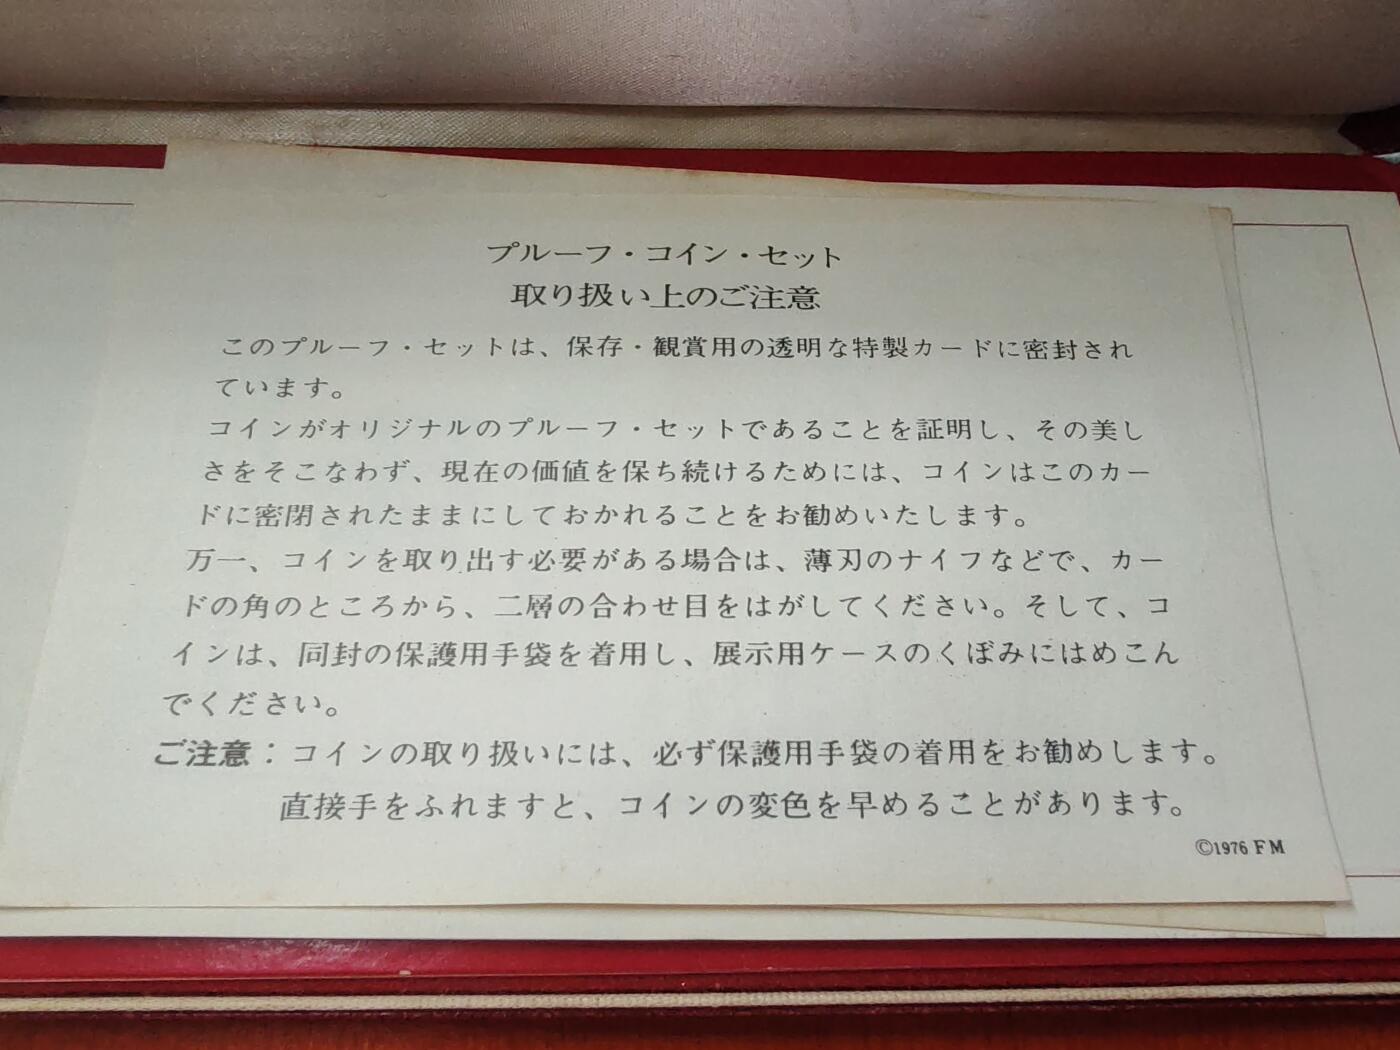 プルーフ・コイン・セット
取り扱い上のご注意
このプルーフ・セットは、保存・観賞用の透明な特製カードに密封され
ています。
コインがオリジナルのプルーフ・セットであることを証明し、その美し
さをそこなわず、現在の価値を保ち続けるためには、コインはこのカー
ドに密閉されたままにしておかれることをお勧めいたします。
万一、コインを取り出す必要がある場合は、薄刃のナイフなどで、カー
ドの角のところから、二層の合わせ目をはがしてください。そして、コ
インは、同封の保護用手袋を着用し、展示用ケースのくぼみにはめこん
でください。
ご注意：コインの取り扱いには、必ず保護用手袋の着用をお勧めします。
直接手をふれますと、コインの変色を早めることがあります。
©1976 FM